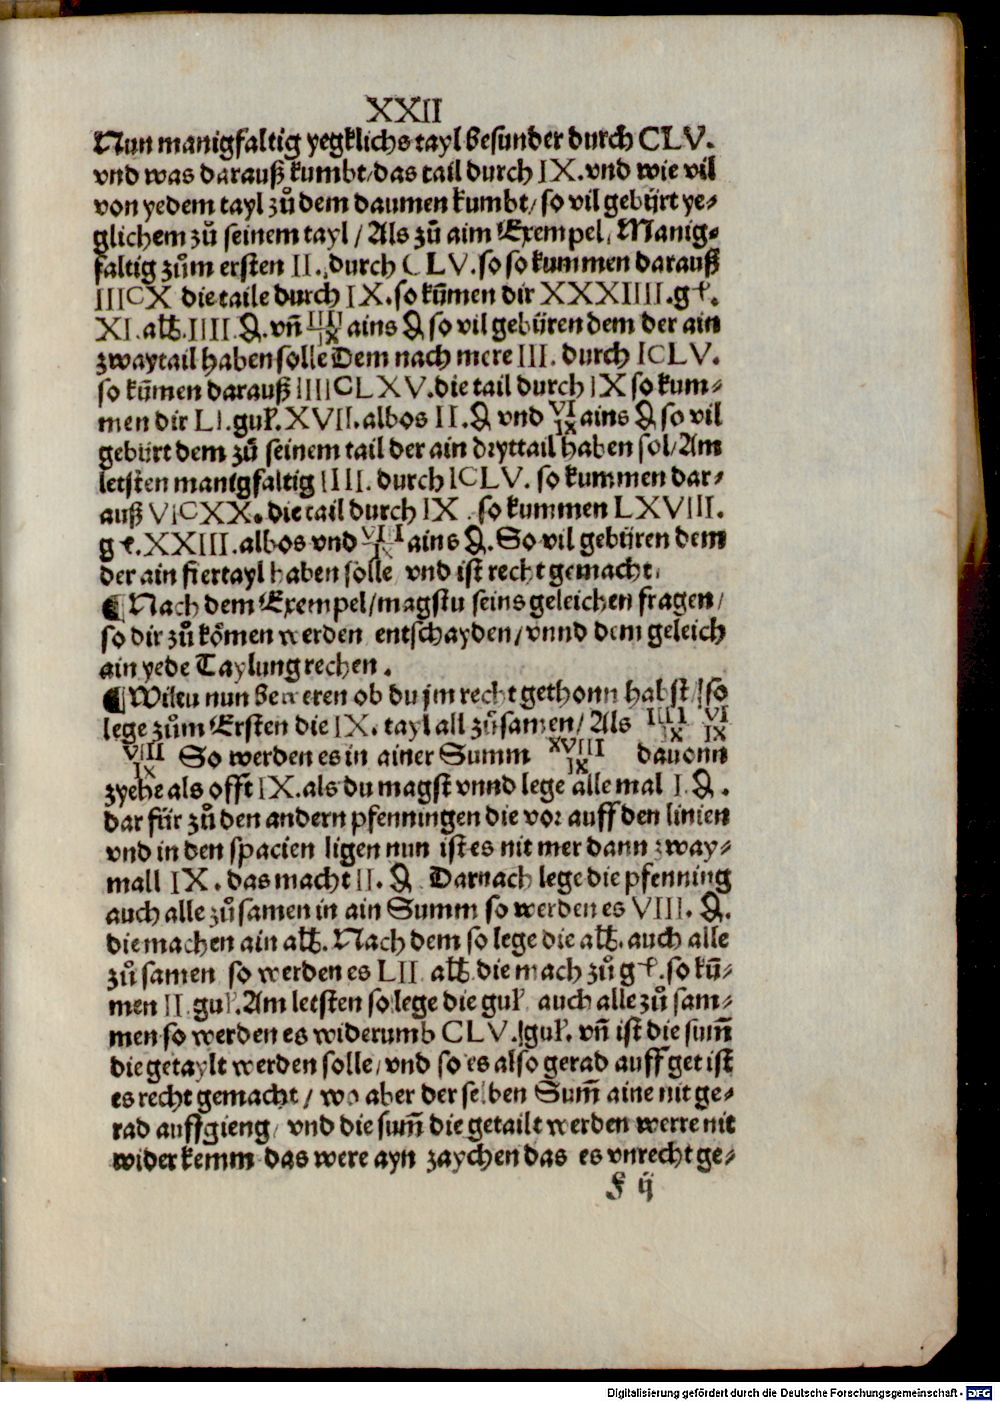 XXII
Nun manigfaltig yegklichs tayl besunder durch CLV.
vnd was darauß kumbt/das tail durch IX.vnd wie vil
von yedem tayl zů dem daumen kumbt/ so vil gebürt ye⸗
glichem zů seinem tayl / Als zů aim Exempel, Manig⸗
faltig zům ersten II. durch CLV. so so kummen darauß
IIICX die taile durch IX. so kūmen dir XXXIIII.gl.
XI.alb.IIII.₰.vñ IIII/IX ains ₰ so vil gebüren dem der ain
zwaytail haben solle Dem nach mere III. durch ICLV.
so kūmen darauß IIIICLXV.die tail durch IX so kum⸗
men dir LI.gul.XVII.albos II.₰ vnd VI/IX ains ₰ so vil
gebürt dem zů seinem tail der ain dryttail haben sol/Am
letsten manigfaltig IIII. durch ICLV. so kummen dar⸗
auß VICXX.die tail durch IX . so kummen LXVIII.
gl.XXIII.albos vnd VIII/IX ains ₰.So vil gebüren dem
der ain fiertayl haben solle vnd ist recht gemacht.
¶Nach dem Exempel/magstu seins geleichen fragen/
so dir zů kömen werden entschayden/vnnd dem geleich
ain yede Taylung rechen.
¶Wiltu nun beweren ob du jm recht gethonn habst/so
lege zům Ersten die IX. tayl all zůsamen/ Als IIII/IX VI/IX
VIII/IX So werden es in ainer Summ XVIII/IX dauonn
zyehe als offt IX.als du magst vnnd lege alle mal I.₰.
dar für zů den andern pfenningen die vor auff den linien
vnd in den spacien ligen nun ist es nit mer dann zway⸗
mall IX.das macht II.₰ Darnach lege die pfenning
auch alle zůsamen in ain Summ so werden es VIII.₰.
die machen ain alb.Nach dem so lege die alb.auch alle
zů samen so werden es LII alb die mach zů gl.so kū⸗
men II gul.Am letsten so lege die gul auch alle zů sam⸗
men so werden es widerumb CLV.gul.vñ ist die sum̄
die getaylt werden solle/vnd so es also gerad auff get ist
es recht gemacht / wo aber der selben Sum̄ aine nit ge⸗
rad auffgieng/ vnd die sum̄ die getailt werden werre nit
wider kemm das were ayn zaychen das es vnrecht ge⸗
F ij
Digitalisierung gefördert durch die Deutsche Forschungsgemeinschaft - DFG